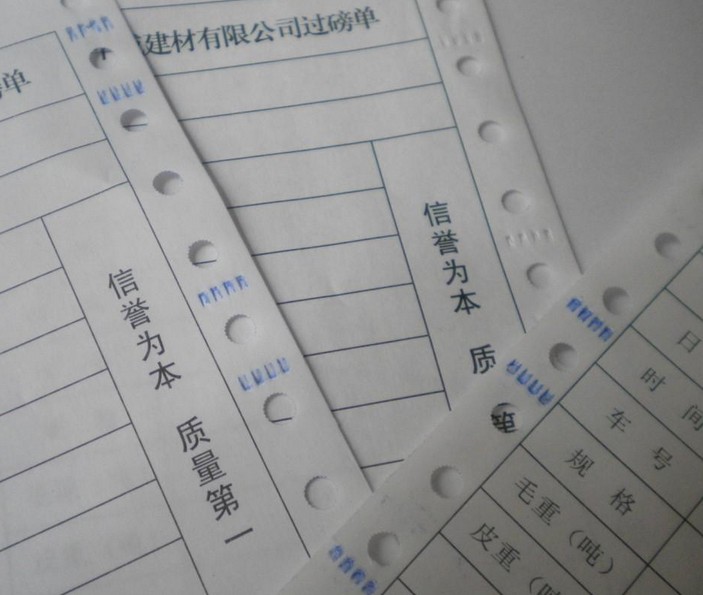 单
建材有限公司过磅单
信誉为本 质量第一
信誉为本 质
第
日
时间
车号
规格
毛重（吨）
皮重（吨